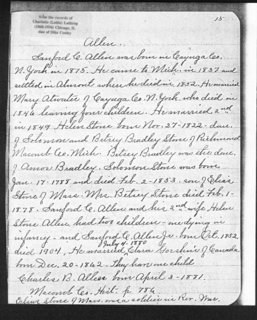 15
Allen.
Sanford C. Allen was born in Cayuga Co.
N. York in 1805. He came to Mich. in 1827 and
settled in Almont where he died in 1852. He married
Mary Atwater of Cayuga Co. N. York who died in
1846 leaving four children. He married 2nd
in 1849 Helen Stone born Nov. 27-1822 dau.
of Solomon and Betsey Bradley Stone of Richmond
Macomb Co. Mich. Betsey Bradley was the dau.
of Amon Bradley. Solomon Stone was born
Jan. 17-1788 and died Feb. 2-1853. son of Elias
Stone of Mass. Mrs. Betsey Stone died Feb. 1-
1878. Sanford C. Allen and his 2nd wife Helen
Stone Allen had two children - one dying in
infancy - and Sanford C. Allen Jr. born Oct. 1852
July 4. 1880
died 1904. He married Clara of Canada
born Dec. 20-1842. They have one child
Charles. B. Allen born April 2-1881.
Macomb Co. Hist. p. 784
Elias Stone of Mass. was a soldier in Rev. War.